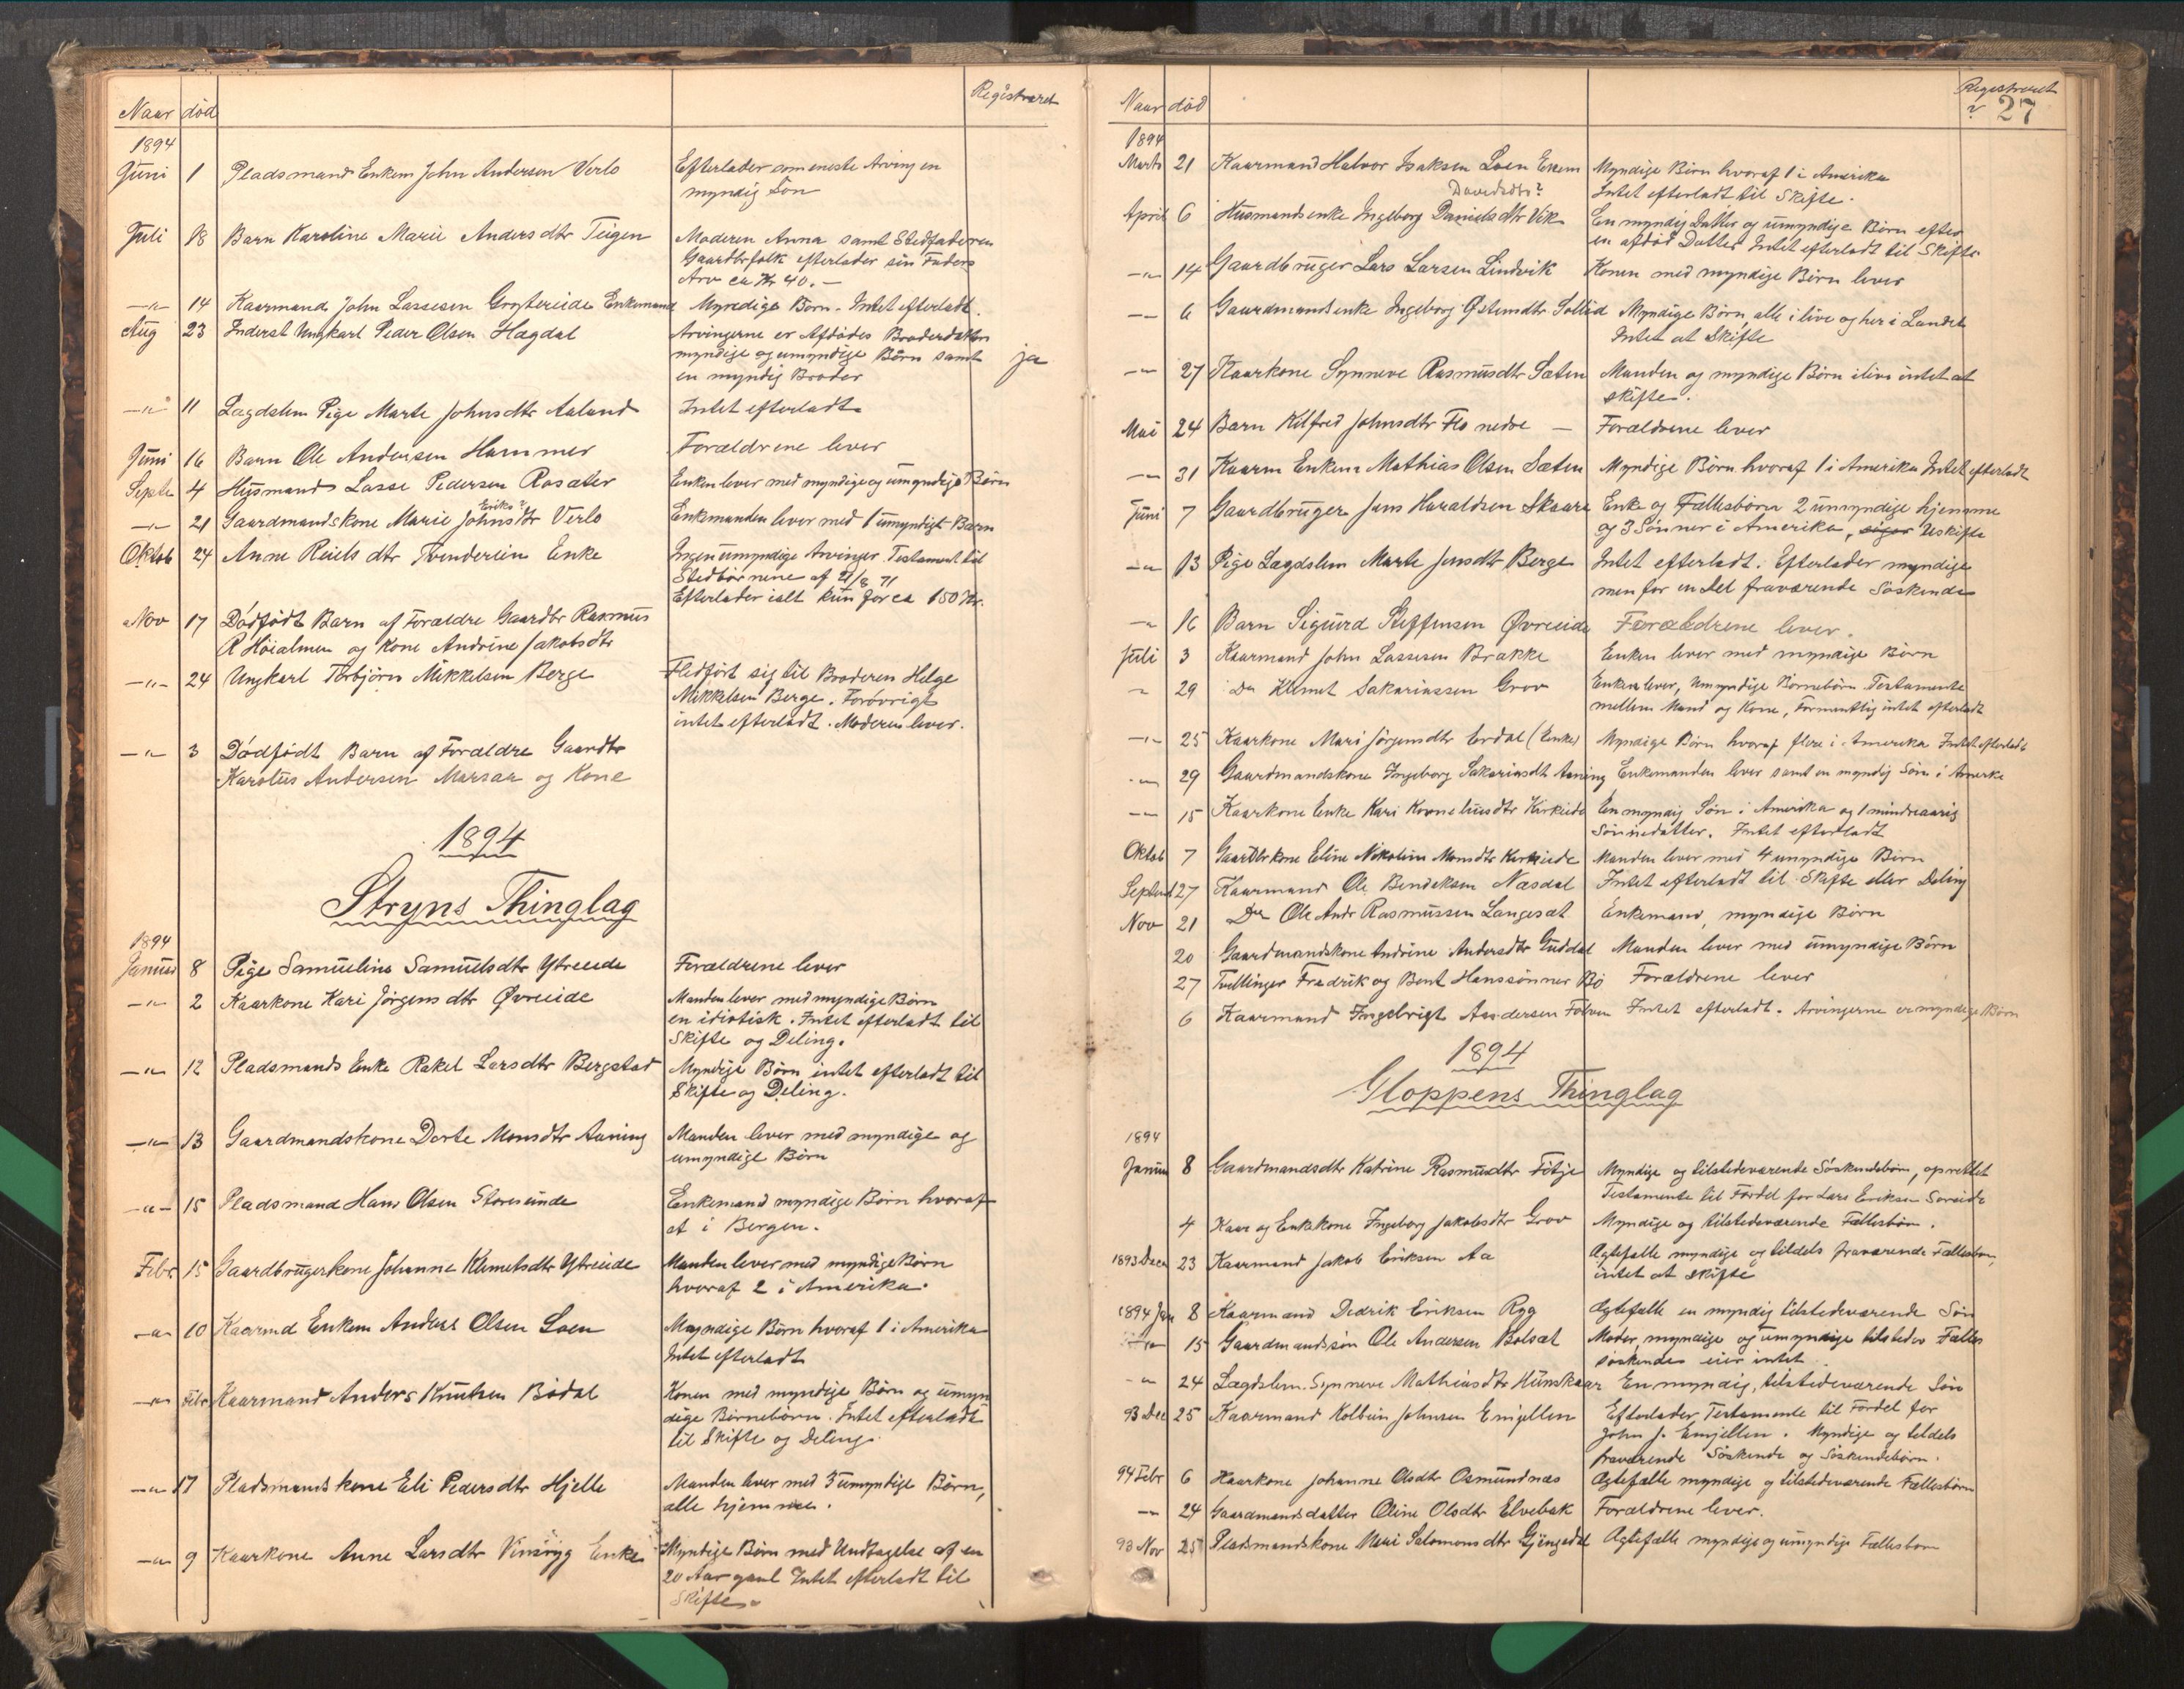 Naar død Registreret
1894
Juni 1 Pladsmand Enkem John Andersen Verlo Efterlader som eneste Arving en
myndig Søn
Juli 18 Barn Karoline Marie Andersdtr Teigen Moderen Anna samt Stedfaderen
Gaardbrfolk efterlader sin Faders
Arv ca Kr 40.-
-"- 14 Kaarmand John Lassesen Enkemand Myndige Børn. Intet efterladt.
Aug 23 Inderst Ungkarl Peder Olsen Hagdal Arvingerne er Afdødes Broderdøttres
myndige og umyndige Børn samt ja
en myndig Broder
-"- 11 Lægdslem Pige Marte Johnsdtr Aaland Intet efterladt
Juni 16 Barn Ole Andersen Hammer Forældrene lever
Septe 4 Husmand Lasse Pedersen Rosæter Enken lever med myndige og umyndige Børn
Eriks?
-"- 21 Gaardmandskone Marie Johnsdtr Verlo Enkemanden lever med 1 umyndigt Barn
Oktob 24 Anne Reielsdtr Enke Ingen umyndige Arvinger. Testament til
Stedbørnene af 21/8 71
Efterlader ialt kun for ca 150 Kr.
Nov 17 Dødfødt Barn af Forældre Gaardbr Rasmus
R Høialmen og Kone Andrine Jakobsdtr
-"- 24 Ungkarl Torbjørn Mikkelsen Berge Fledført sig til Broderen Helge
Mikkelsen Berge. Forøvrigt
intet efterladt. Moderen lever.
-"- 3 Dødfødt Barn af Forældre Gaardbr
Karolus Andersen Marsaa og Kone
1894
Stryns Thinglag
1894
Januar 8 Pige Samueline Samuelsdtr Ytreeide Forældrene lever
-"- 2 Kaarkone Kari Jørgensdtr Øvreeide Manden lever med myndige Børn
en idiotisk. Intet efterladt til
Skifte og Deling.
-"- 12 Pladsmands Enke Rakel Larsdtr Bergstad Myndige Børn intet efterladt til
Skifte og Deling.
-"- 13 Gaardmandskone Dorte Monsdtr Aaning Manden lever med myndige og
umyndige Børn
-"- 15 Pladsmand Hans Olsen Storesunde Enkemand myndige Børn hvoraf
et i Bergen.
Febr 15 Gaardbrugerkone Johanne Klemetsdtr Ytreeide Manden lever med myndige Børn
hvoraf 2 i Amerika.
-"- 10 Kaarmd Enkem Anders Olsen Loen Myndige Børn hvoraf 1 i Amerika
Intet efterladt
-"- Febr Kaarmand Anders Knutsen Bødal Konen med myndige Børn og umyn
dige Børnebørn. Intet efterladt
til Skifte og Deling.
-"- 17 Pladsmandskone Eli Pedersdtr Hjelle Manden lever med 3 umyndige Børn,
alle hjemme.
-"- 9 Kaarkone Anne Larsdtr Vinsrygg Enke Myndige Børn med Undtagelse af en
20 Aar gaml Intet efterladt til
Skifte.
Naar død Registreret
27
1894
Marts 21 Kaarmand Halvor Isaksen Loen Enkem Myndige Børn hvoraf 1 i Amerika
Intet efterladt til Skifte.
Davidsdtr?
April 6 Husmandsenke Ingeborg Danielsdtr Vik En myndig Datter og umyndige Børn efter
en afdød Datter Intet efterladt til Skifte
-"- 14 Gaardbruger Lars Larsen Lindvik Konen med myndige Børn lever
-"- 6 Gaardmandsenke Ingeborg Østensdtr Sollid Myndige Børn, alle i live og her i Landet
Intet at Skifte
-"- 27 Kaarkone Synneve Rasmusdtr Sæten Manden og myndige Børn i live intet at
skifte.
Mai 24 Barn Kilfred Johnsdtr Flo nedre - Forældrene lever
-"- 31 Kaarm Enkem Mathias Olsen Sæten Myndige Børn hvoraf 1 i Amerika Intet efterladt
Juni 7 Gaardbruger Jens Haraldsen Skaare Enke og Fællesbørn 2 umyndige hjemme
og 3 Sønner i Amerika, Uskifte
-"- 13 Pige Lægdslem Marte Jensdtr Berge Intet efterladt. Efterlader myndige
men for en Del fraværende Søskende
-"- 16 Barn Sigurd Steffensen Øvreeide Forældrene lever.
Juli 3 Kaarmand John Lassesen Brække Enken lever med myndige Børn
" 29 Do Klemet Sakariassen Grov Enken lever, umyndige Børnebørn Testamente
mellem Mand og Kone, Formentlig intet efterladt
-"- 25 Kaarkone Mari Jørgensdtr Erdal (Enke) Myndige Børn hvoraf flere i Amerika Intet efterladt
-"- 29 Gaardmandskone Ingeborg Sakariasdt Aaning Enkemanden lever samt en myndig Søn i Amerika
-"- 15 Kaarkone Enke Kari Korneliusdtr Kirkeide En myndig Søn i Amerika og 1 mindreaarig
Sønnedatter. Intet efterladt
Oktob 7 Gaardbrkone Eline Nikoline Monsdtr Kirkeide Manden lever med 4 umyndige Børn
Septemb 27 Kaarmand Ole Bendeksen Næsdal Intet efterladt til Skifte eller Deling
Nov 21 Do Ole Andr Rasmussen Langesæt Enkemand, myndige Børn
20 Gaardmandskone Andrine Andersdtr Guddal Manden lever med umyndige Børn
27 Tvillinger Fredrik og Bent Hanssønner Bø Forældrene lever
6 Kaarmand Ingebrigt Andersen Folven Intet efterladt. Arvingerne er myndige Børn
1894
Gloppens Thinglag
1894
Januar 8 Gaardmandsdtr Katrine Rasmusdtr Føtje Myndige og tilstedeværende Søskendebørn, oprettet
Testamente til Fordel for Lars Eriksen Soreide
4 Kaar og Enkekone Ingeborg Jakobsdtr Grov Myndige og tilstedeværende Fællesbørn.
1893 Dec 23 Kaarmand Jakob Eriksen Aa Agtefælle myndige og tildels fraværende Fællesbørn,
intet at skifte
1894 Jan 8 Kaarmand Didrik Eriksen Ryg Agtefælle en myndig tilstedeværende Søn
-"- 15 Gaardmandssøn Ole Andersen Bolsæt Moder, myndige og umyndige tilstedev Fælles
søskende eier intet.
-"- 24 Lægdslem Synneve Mathiasdtr Hunskaar En myndig, tilstedeværende Søn
93 Dec 25 Kaarmand Kolbein Johnsen Emjellen Efterlader Testamente til Fordel for
John J. Emjellen. Myndige og tildels
fraværende Søskende og Søskendebørn.
94 Febr 6 Kaarkone Johanne Olsdtr Osmundnæs Agtefælle myndige og tilstedeværende Fællesbørn
-"- 24 Gaardmandsdatter Oline Olsdtr Elvebak Forældrene lever.
93 Nov 25 Pladsmandskone Mari Salomonsdtr Gjengedal Agtefælle myndige og umyndige Fællesbørn